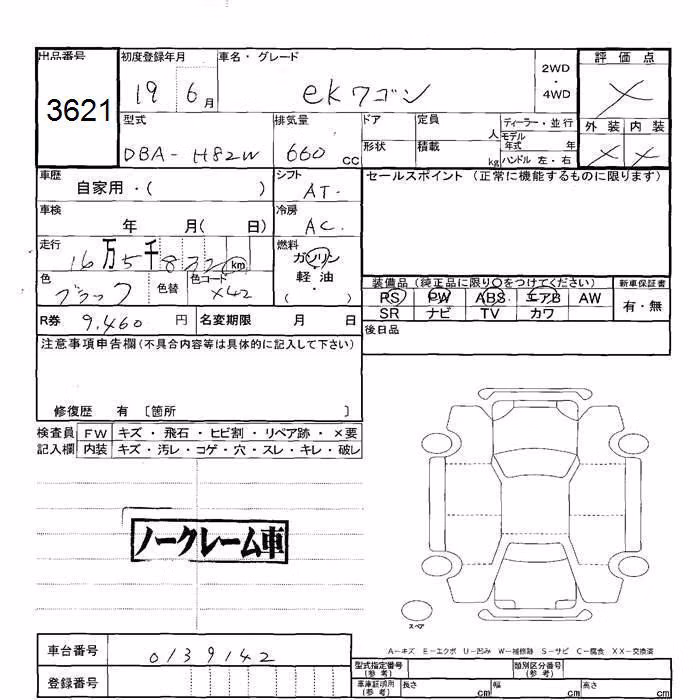 出品番号 初度登録年月 車名・グレード 2WD・4WD 評価点
3621 19 6月 ekワゴン ×
型式 排気量 ドア 定員 人 ディーラー・並行 外装 内装
DBA-H82W 660cc 形状 積載 kg モデル年式 年 ハンドル 左・右 × ×
車歴 自家用・( ) シフト AT. セールスポイント(正常に機能するものに限ります)
車検 年 月( 日) 冷房 AC.
走行 16万5千832km 燃料 ガソリン
色 ブラック 色替 色コード X42 軽油・( )
装備品(純正品に限り○をつけてください) 新車保証書
PS PW ABS エアB AW 有・無
SR ナビ TV カワ
R券 9.460円 名変期限 月 日 後日品
注意事項申告欄(不具合内容等は具体的に記入して下さい)
修復歴 有 〔箇所 〕
検査員 FW キズ・飛石・ヒビ割・リペア跡・×要
記入欄 内装 キズ・汚レ・コゲ・穴・スレ・キレ・破レ
ノークレーム車
スペア
A-キズ E-エクボ U-凹み W-補修跡 S-サビ C-腐食 XX-交換済
車台番号 0139142 型式指定番号(参考) 類別区分番号(参考)
登録番号 車庫証明用(参考) 長さ cm 幅 cm 高さ cm